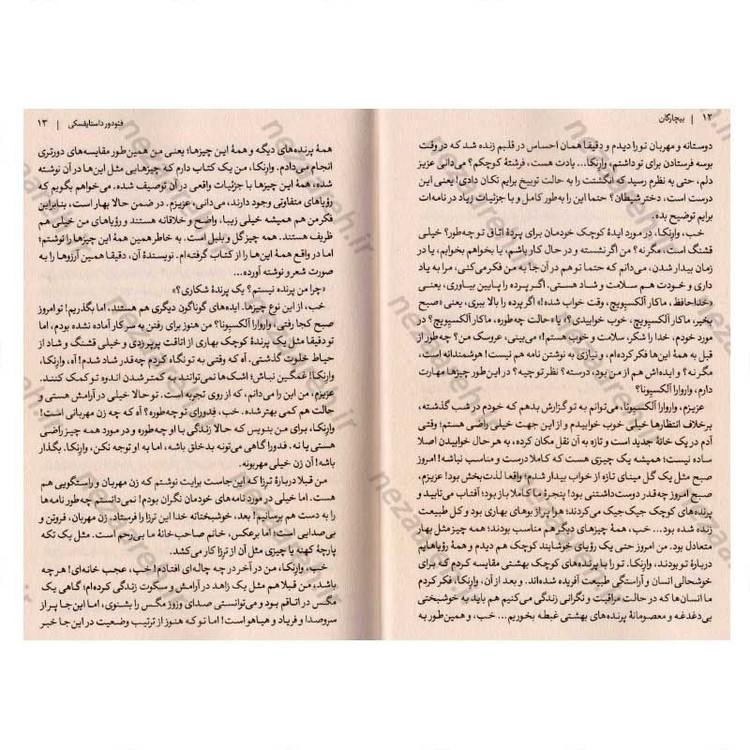 ۱۲ | بیچارگان
دوستانه و مهربان تو را دیدم و دقیقا همان احساس در قلبم زنده شد که در وقت
بوسه فرستادن برای تو داشتم، وارنکا... یادت هست، فرشتهٔ کوچکم؟ می‌دانی عزیز
دلم، حتی به نظرم رسید که انگشتت را به حالت توبیخ برایم تکان دادی! یعنی این
طور است، دختر شیطان؟ حتما این را به‌طور کامل و با جزئیات زیاد در نامه‌ات
برایم توضیح بده.
خب، وارنکا، در مورد ایدهٔ کوچک خودمان برای پردهٔ اتاق تو چه‌طور؟ خیلی
قشنگ است، مگر نه؟ من اگر نشسته و در حال کار باشم، یا بخواهم بخوابم، یا در
زمان بیدار شدن، می‌دانم که حتما تو هم در آن‌جا به من فکر می‌کنی، مرا به یاد
داری و خودت هم سلامت و شاد هستی. اگر پرده را پایین بیاوری، یعنی
«خداحافظ، ماکار آلکسِیِویچ، وقت خواب شده!» اگر پرده را بالا ببری، یعنی «صبح
بخیر، ماکار آلکسِیِویچ، خوب خوابیدی؟، یا «حالت چه‌طوره، ماکار آلکسِیِویچ؟ در
مورد خودم، خدا را شکر، سلامت و خوب هستم!» می‌بینی، عروسک من؟ چه‌طور از
قبل به همهٔ این‌ها فکر کرده‌ام، و نیازی به نوشتن نامه هم نیست! هوشمندانه است،
مگر نه؟ و ایده‌اش هم از من بود، درسته؟ نظر تو چیه؟ در این‌طور چیزها مهارت
دارم، واروارا آلکسِیِونا؟
عزیزم، واروارا آلکسِیِونا، می‌توانم به تو گزارش بدهم که خودم در شب گذشته،
برخلاف انتظارها خیلی خوب خوابیدم و از این جهت خیلی راضی هستم؛ وقتی
آدم در یک خانهٔ جدید است و تازه به آن نقل مکان کرده، به هر حال خوابیدن اصلا
ساده نیست؛ همیشه یک چیزی هست که کاملا درست و مناسب نباشه! امروز
صبح مثل یک گل مینای تازه از خواب بیدار شدم؛ واقعا لذت‌بخش بود! عزیزم،
صبح امروز چه‌قدر دوست‌داشتنی بود! پنجرهٔ ما کاملا باز بود؛ آفتاب می‌تابید و
پرنده‌های کوچک جیک‌جیک می‌کردند؛ هوا پر از بوهای بهاری بود و کل طبیعت
زنده شده بود... خب، همهٔ چیزهای دیگر هم مناسب بودند؛ همه چیز مثل بهار
متعادل بود. من امروز حتی یک رؤیای خوشایند کوچک هم دیدم و همهٔ رؤیاهایم
دربارهٔ تو بودند، وارنکا. تو را با پرنده‌های کوچک بهشتی مقایسه کردم که برای
خوشحالی انسان و آراستگی طبیعت آفریده شده‌اند. و بعد از آن، وارنکا، فکر کردم
ما انسان‌ها که در حالت مراقبت و نگرانی زندگی می‌کنیم هم باید به خوشبختی
بی‌دغدغه و معصومانهٔ پرنده‌های بهشتی غبطه بخوریم... خب، و همین‌طور به
فئودور داستایفسکی | ۱۳
همهٔ پرنده‌های دیگه و همهٔ این چیزها؛ یعنی من همین‌طور مقایسه‌های دورتری
انجام می‌دادم. وارنکا، من یک کتاب دارم که چیزهایی مثل این‌ها در آن نوشته
شده، همهٔ این چیزها با جزئیات واقعی در آن توصیف شده. می‌خواهم بگویم که
رؤیاهای متفاوتی وجود دارند، می‌دانی، عزیزم. در ضمن حالا بهار است، بنابراین
فکر من هم همیشه خیلی زیبا، واضح و خلاقانه هستند و رؤیاهای من خیلی هم
ظریف هستند. همه چیز گل و بلبل است. به خاطر همین همهٔ این چیزها را نوشتم؛
اما در واقع همهٔ این‌ها را از کتاب گرفته‌ام. نویسندهٔ آن، دقیقا همین آرزوها را به
صورت شعر و نوشته آورده...
«چرا من پرنده نیستم؟ یک پرندهٔ شکاری؟»
خب، از این نوع چیزها. ایده‌های گوناگون دیگری هم هستند، اما بگذریم! تو امروز
صبح کجا رفتی، واروارا آلکسِیِونا؟ من هنوز برای رفتن به سر کار آماده نشده بودم، اما
تو دقیقا مثل یک پرندهٔ کوچک بهاری از اتاقت پر پر زدی و خیلی قشنگ و شاد از
حیاط خلوت گذشتی. آه که وقتی به تو نگاه کردم چه‌قدر شاد شدم! آه، وارنکا،
وارنکا! غمگین نباش؛ اشک‌ها نمی‌توانند به کمتر شدن اندوه تو کمک کنند.
عزیزم، من این را می‌دانم، که از روی تجربه است. تو حالا خیلی در آرامش هستی و
حالت هم کمی بهتر شده. خب، فدورای تو چه‌طوره؟ آه که چه زن مهربانی است!
وارنکا، برای من بنویس که حالا زندگی با او چه‌طوره و در مورد همه چیز راضی
هستی یا نه. فدورا گاهی می‌تونه بدخلق باشه، اما به او توجه نکن، وارنکا. بگذار
باشه! آن زن خیلی مهربونه.
من قبلا دربارهٔ ترزا که این‌جاست برایت نوشتم که زن مهربان و راستگویی هم
هست. اما خیلی در مورد نامه‌های خودمان نگران بودم! نمی‌دانستم چه‌طور نامه‌ها
را به دست هم برسانیم! بعد، خوشبختانه خدا این ترزا را فرستاد. زن مهربان، فروتن و
بی‌صدایی است؛ اما برعکس، خانم صاحب‌خانهٔ ما بی‌رحم است. مثل یک تکه
پارچهٔ کهنه یا چیزی مثل آن از ترزا کار می‌کشد.
خب، وارنکا، من در آخر در چه چاله‌ای افتادم! خب، عجب خانه‌ای! هر چه
باشد، من قبلا هم مثل یک زاهد در آرامش و سکوت زندگی کرده‌ام؛ گاهی یک
مگس در اتاقم بود و می‌توانستی صدای وزوز مگس را بشنوی، اما این‌جا پر از
سروصدا و فریاد و هیاهو است! اما تو که هنوز از ترتیب وضعیت در این‌جا خبر
nezareh.ir